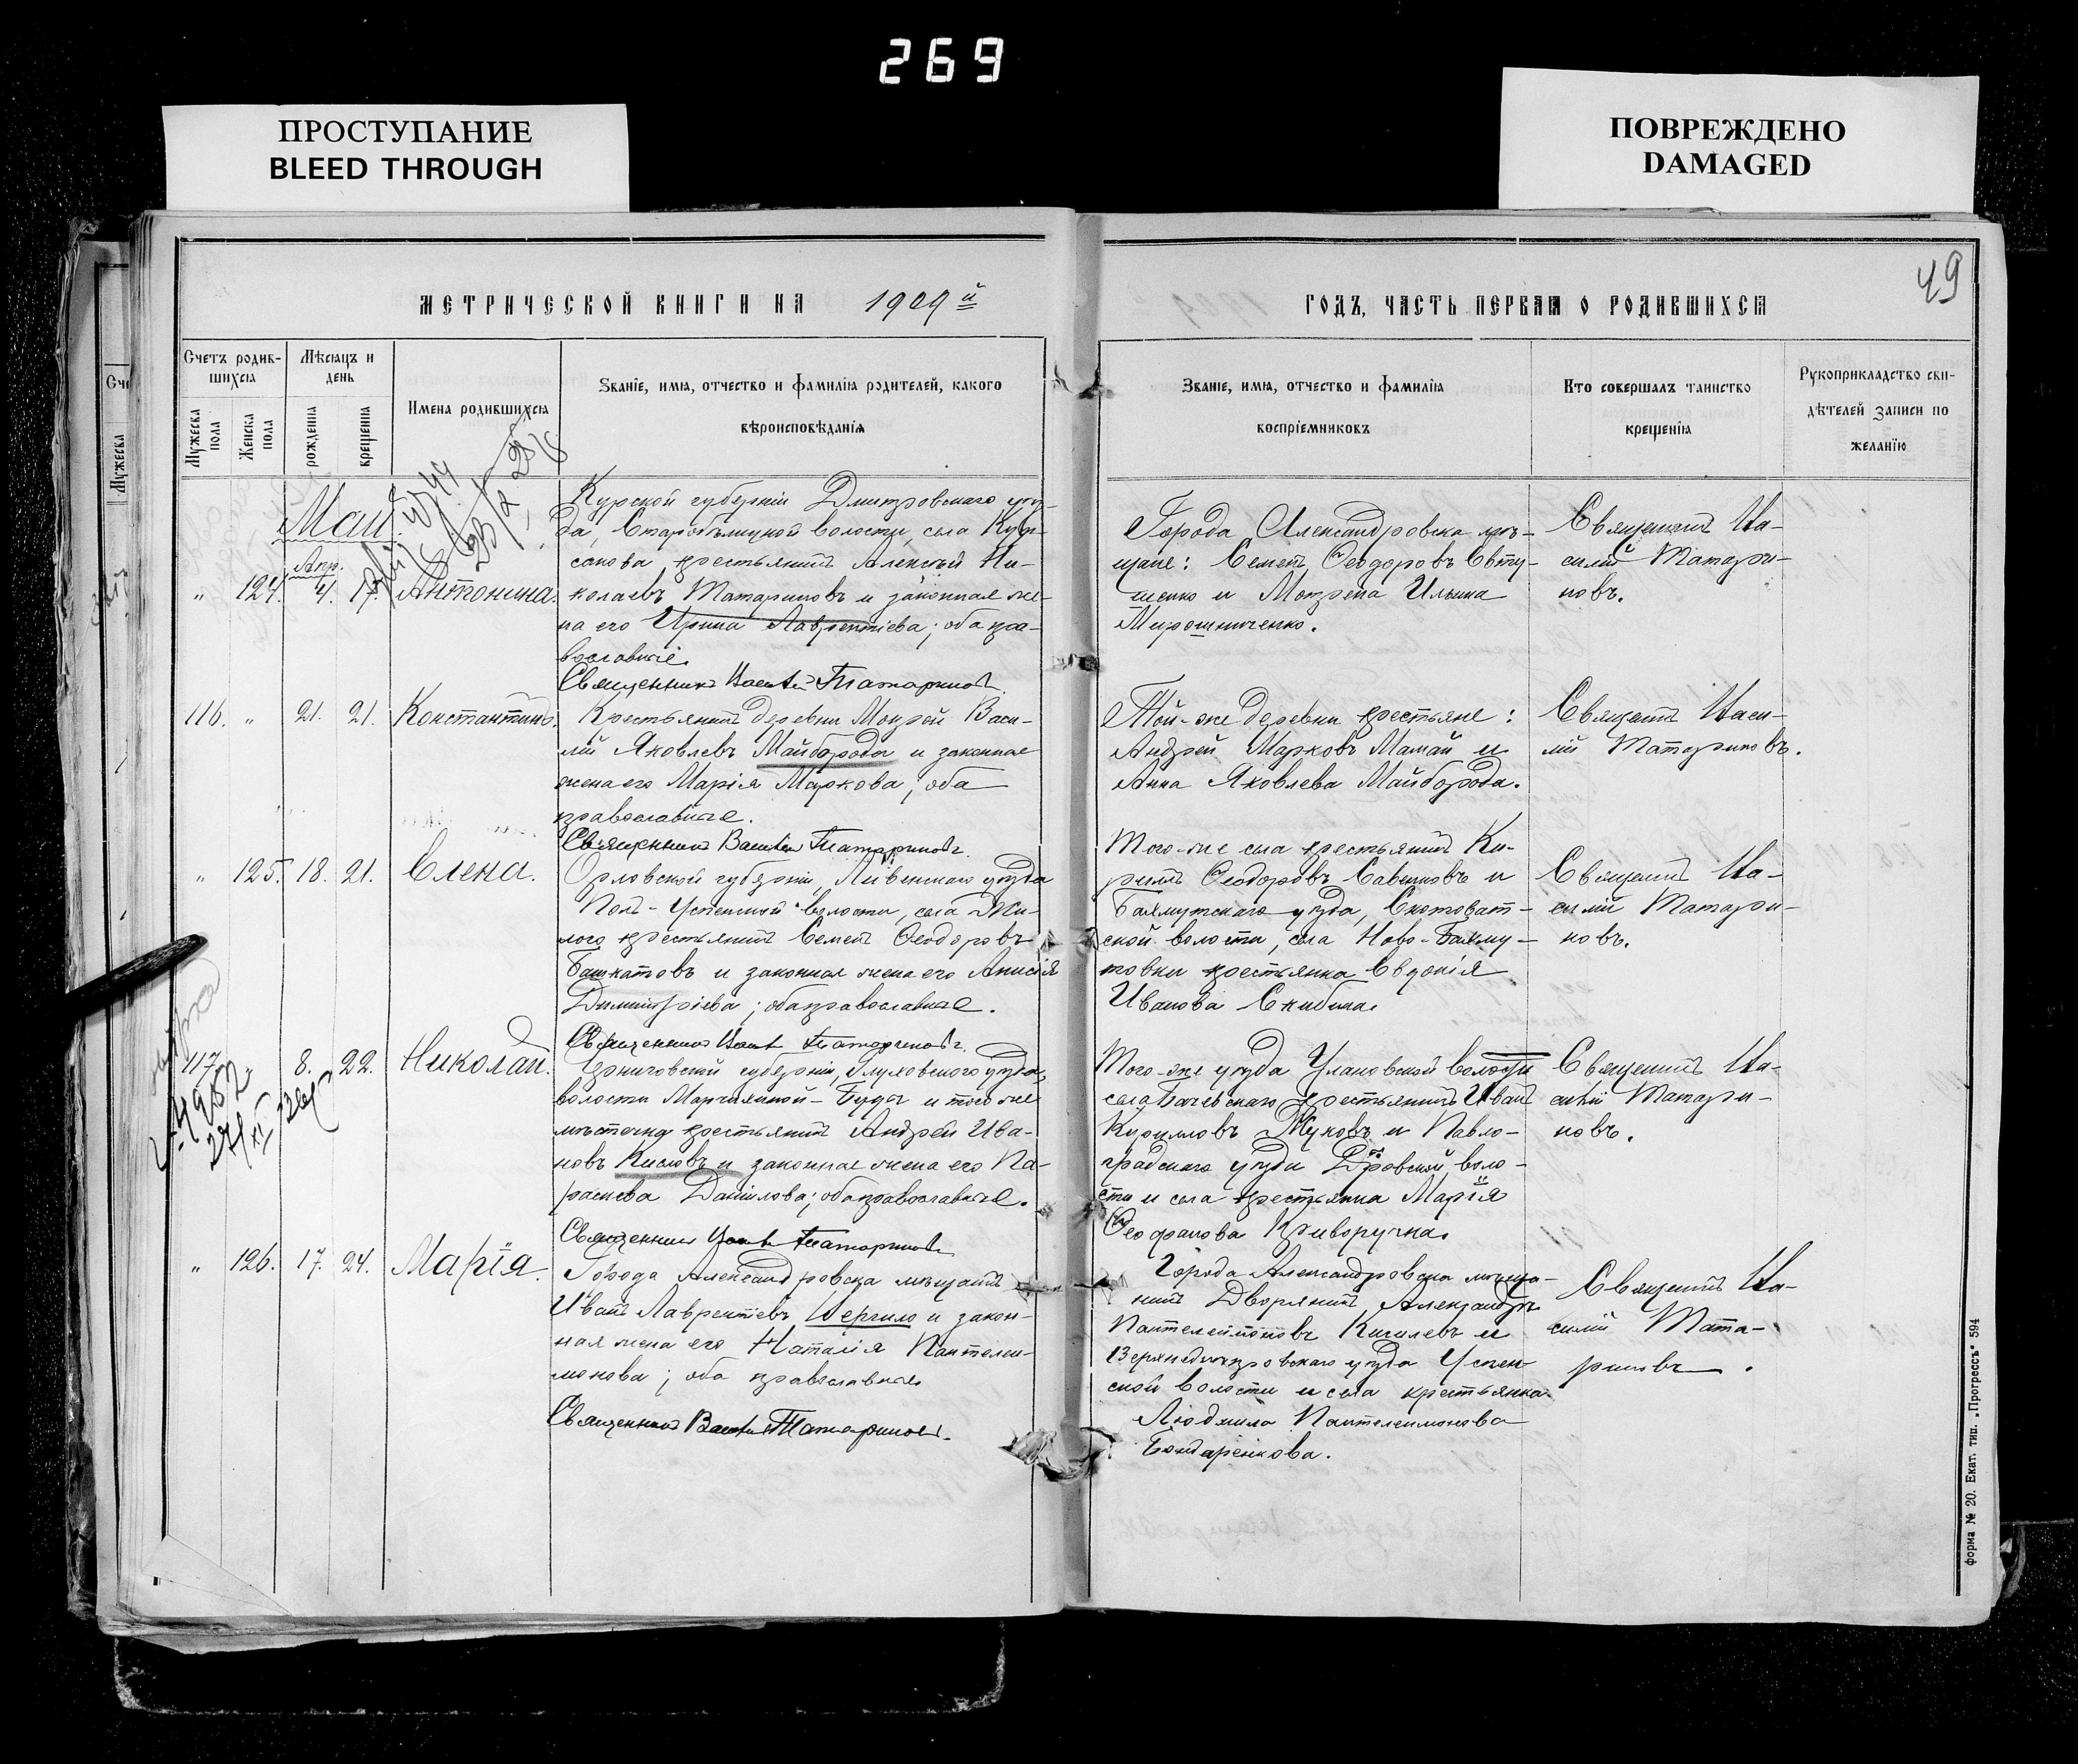 269
ПРОСТУПАНИЕ
BLEED THROUGH
ПОВРЕЖДЕНО
DAMAGED
49
МЕТРИЧЕСКОЙ КНИГИ НА 1909й
ГОДЪ, ЧАСТЬ ПЕРВАЯ О РОДИВШИХСЯ
Счетъ родив-
шихся
Мужеска пола
Женска пола
Мѣсяцъ и
день
рожденія
крещенія
Имена родившихся
Званіе, имя, отчество и фамилія родителей, какого
вѣроисповѣданія
Званіе, имя, отчество и фамилія
воспріемниковъ
Кто совершалъ таинство
крещенія
Рукоприкладство сви-
дѣтелей записи по
желанію
Май.
Апр.
„ 124. 4. 17. Антонина.
Курской губерніи Дмитровскаго уѣз-
да, волости, села
крестьянинъ Алексѣй Ни-
колаевъ Татариновъ и законная же-
на его Ирина Лаврентіева; оба пра-
вославные.
Священникъ Татариновъ.
Города Александровска мѣ-
щане: Семенъ Ѳеодоровъ Евту-
шенко и Матрена Ильина
Мирошниченко.
Священникъ Ва-
силій Татари-
новъ.
116. „ 21. 21. Константинъ.
Крестьянинъ деревни Мокрой Васи-
лій Яковлевъ Майборода и законная
жена его Марія Маркова; оба
православные.
Священникъ Василій Татариновъ.
Той-же деревни крестьяне:
Андрей Марковъ Мамай и
Анна Яковлева Майборода.
Священникъ Васи-
лій Татариновъ.
„ 125. 18. 21. Елена.
Орловской губерніи, Ливенскаго уѣзда
Поль-Успенской волости, села Жи-
лого крестьянинъ Семенъ Ѳеодоровъ
Башкатовъ и законная жена его Анисія
Димитріева; оба православные.
Священникъ Татариновъ.
Того-же села крестьянинъ Ки-
риллъ Ѳеодоровъ Савенковъ и
Бахмутскаго уѣзда, Скотоват-
ской волости, села Ново-Бахму-
товки крестьянка Евдокія
Иванова Скибина.
Священникъ Ва-
силій Татари-
новъ.
117. 8. 22. Николай.
Черниговской губерніи, Глуховского уѣзда,
волости Марчихиной-Буды и того же
мѣстечка крестьянинъ Андрей Ива-
новъ Кисловъ и законная жена его Па-
раскева Даніилова; оба православные.
Священникъ Татариновъ
Того-же уѣзда Улановской волости
села крестьянинъ Иванъ
Кирилловъ Жуковъ и Павло-
градскаго уѣзда воло-
сти и села крестьянка Марія
Ѳеофанова Криворучка.
Священникъ Ва-
силій Татари-
новъ.
„ 126. 17. 24. Марія.
Города Александровска мѣщанинъ
Иванъ Лаврентіевъ Шергило и закон-
ная жена его Наталія Пантелеи-
монова; оба православные
Священникъ Василій Татариновъ.
Города Александровска мѣща-
нинъ Дворянинъ Александръ
Пантелеимоновъ и
Верхнеднѣпровскаго уѣзда Успен-
ской волости и села крестьянка
Людмила Пантелеимонова
Бондаренкова.
Священникъ Ва-
силій Тата-
риновъ.
форма № 20. Екат. тип. „Прогрессъ“ 594